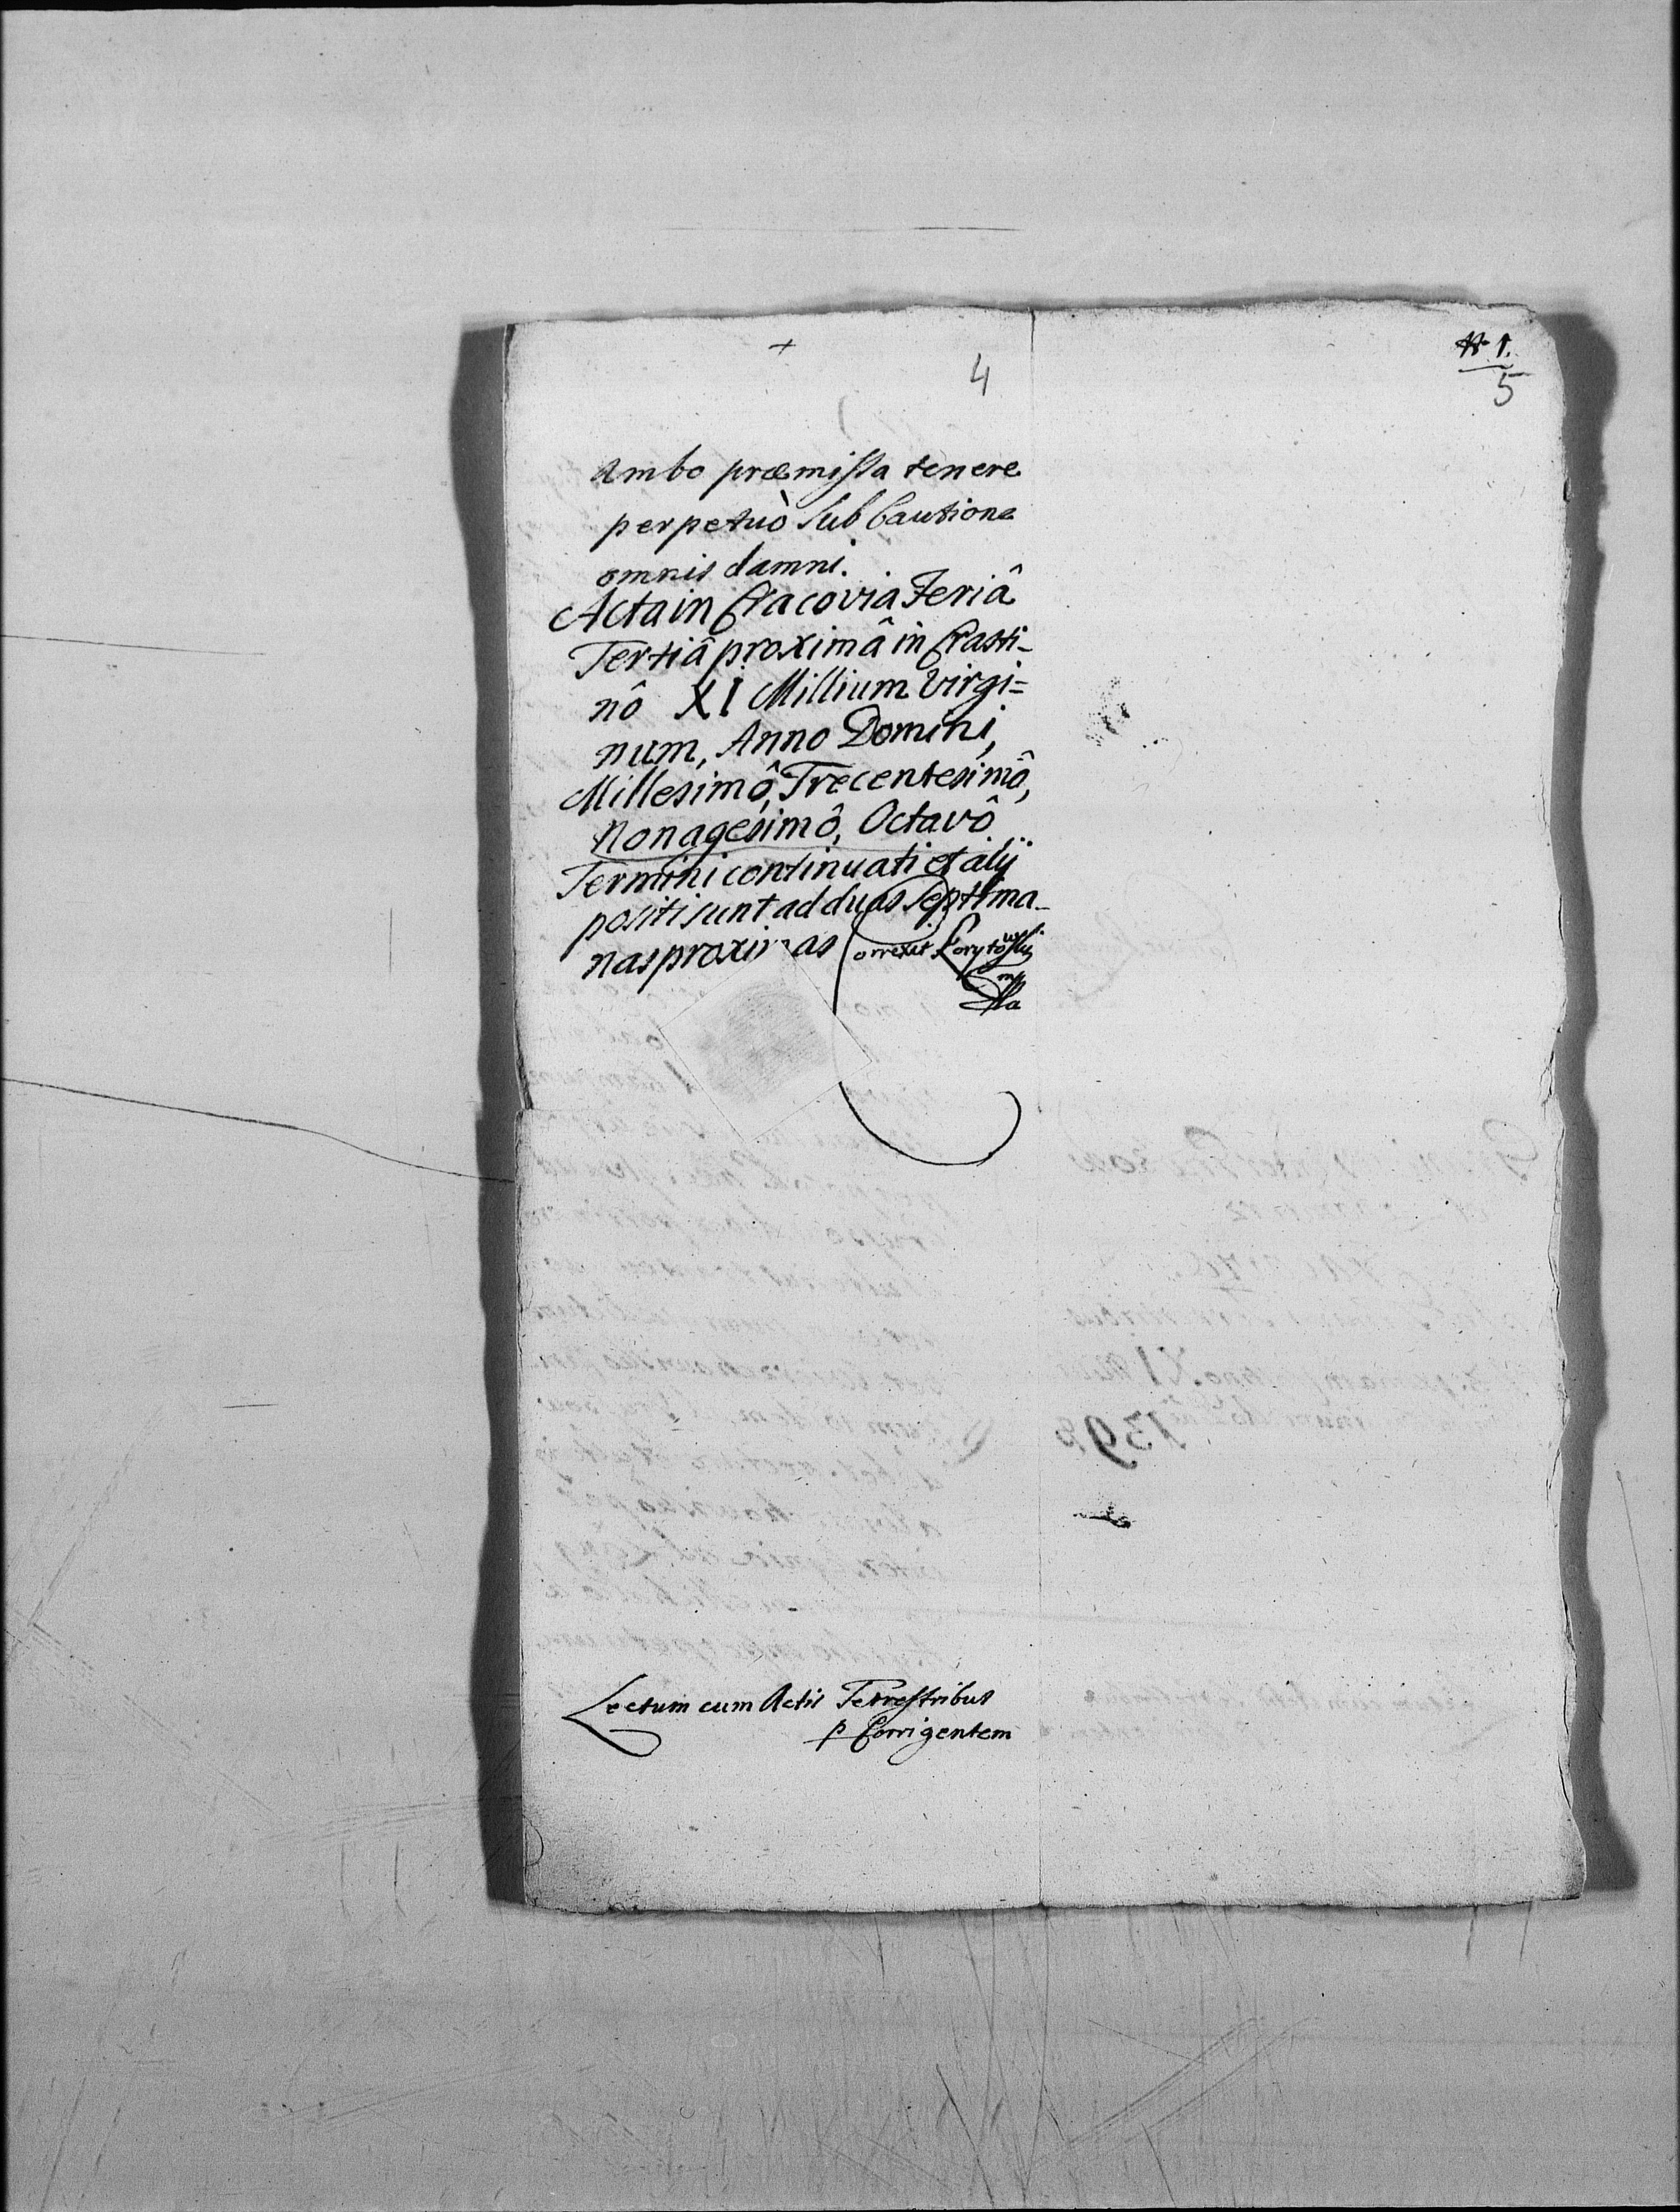 4
№ 1.
5
ambo præmissa tenere
perpetuò sub Cautione
omnis damni.
Acta in Cracovia Feriâ
Tertiâ proximâ in Crasti-
nô XI Millium Virgi=
num, Anno Domini,
Millesimô, Trecentesimô,
Nonagesimô, Octavô
Termini continuati et alij
positi sunt ad duas septima-
nas proximas Correxit
Lectum cum Actis Terrestribus
p Corrigentem